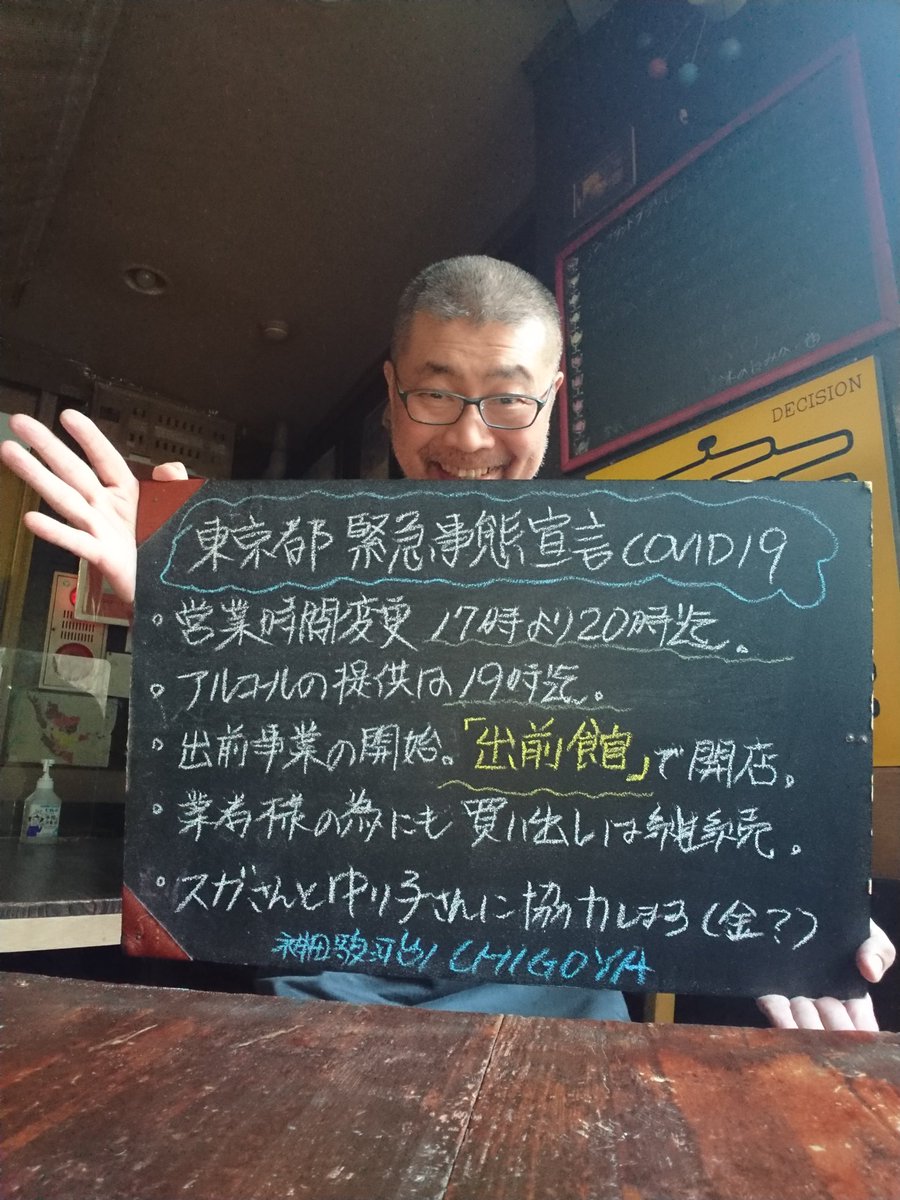 DECISION
東京都 緊急事態宣言 COVID19
・営業時間変更 17時より20時迄。
・アルコールの提供は19時迄。
・出前事業の開始。「出前館」で開店。
・業者様の為にも買い出しは継続。
・スガさんとゆり子さんに協力しまろ(金?)
神田駿河台 CHIGOYA